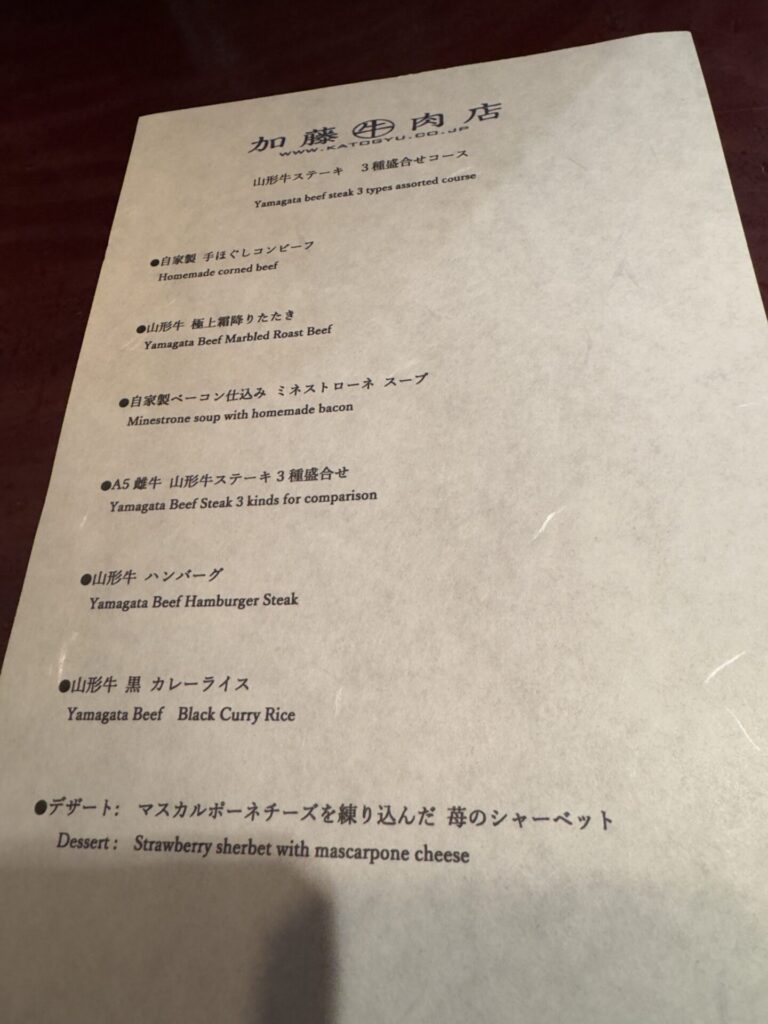 加藤牛肉店
WWW.KATOGYU.CO.JP
山形牛ステーキ　３種盛合せコース
Yamagata beef steak 3 types assorted course
●自家製 手ほぐしコンビーフ
Homemade corned beef
●山形牛 極上霜降りたたき
Yamagata Beef Marbled Roast Beef
●自家製ベーコン仕込み ミネストローネ スープ
Minestrone soup with homemade bacon
●A5 雌牛 山形牛ステーキ３種盛合せ
Yamagata Beef Steak 3 kinds for comparison
●山形牛 ハンバーグ
Yamagata Beef Hamburger Steak
●山形牛 黒 カレーライス
Yamagata Beef　Black Curry Rice
●デザート：　マスカルポーネチーズを練り込んだ 苺のシャーベット
Dessert :　Strawberry sherbet with mascarpone cheese